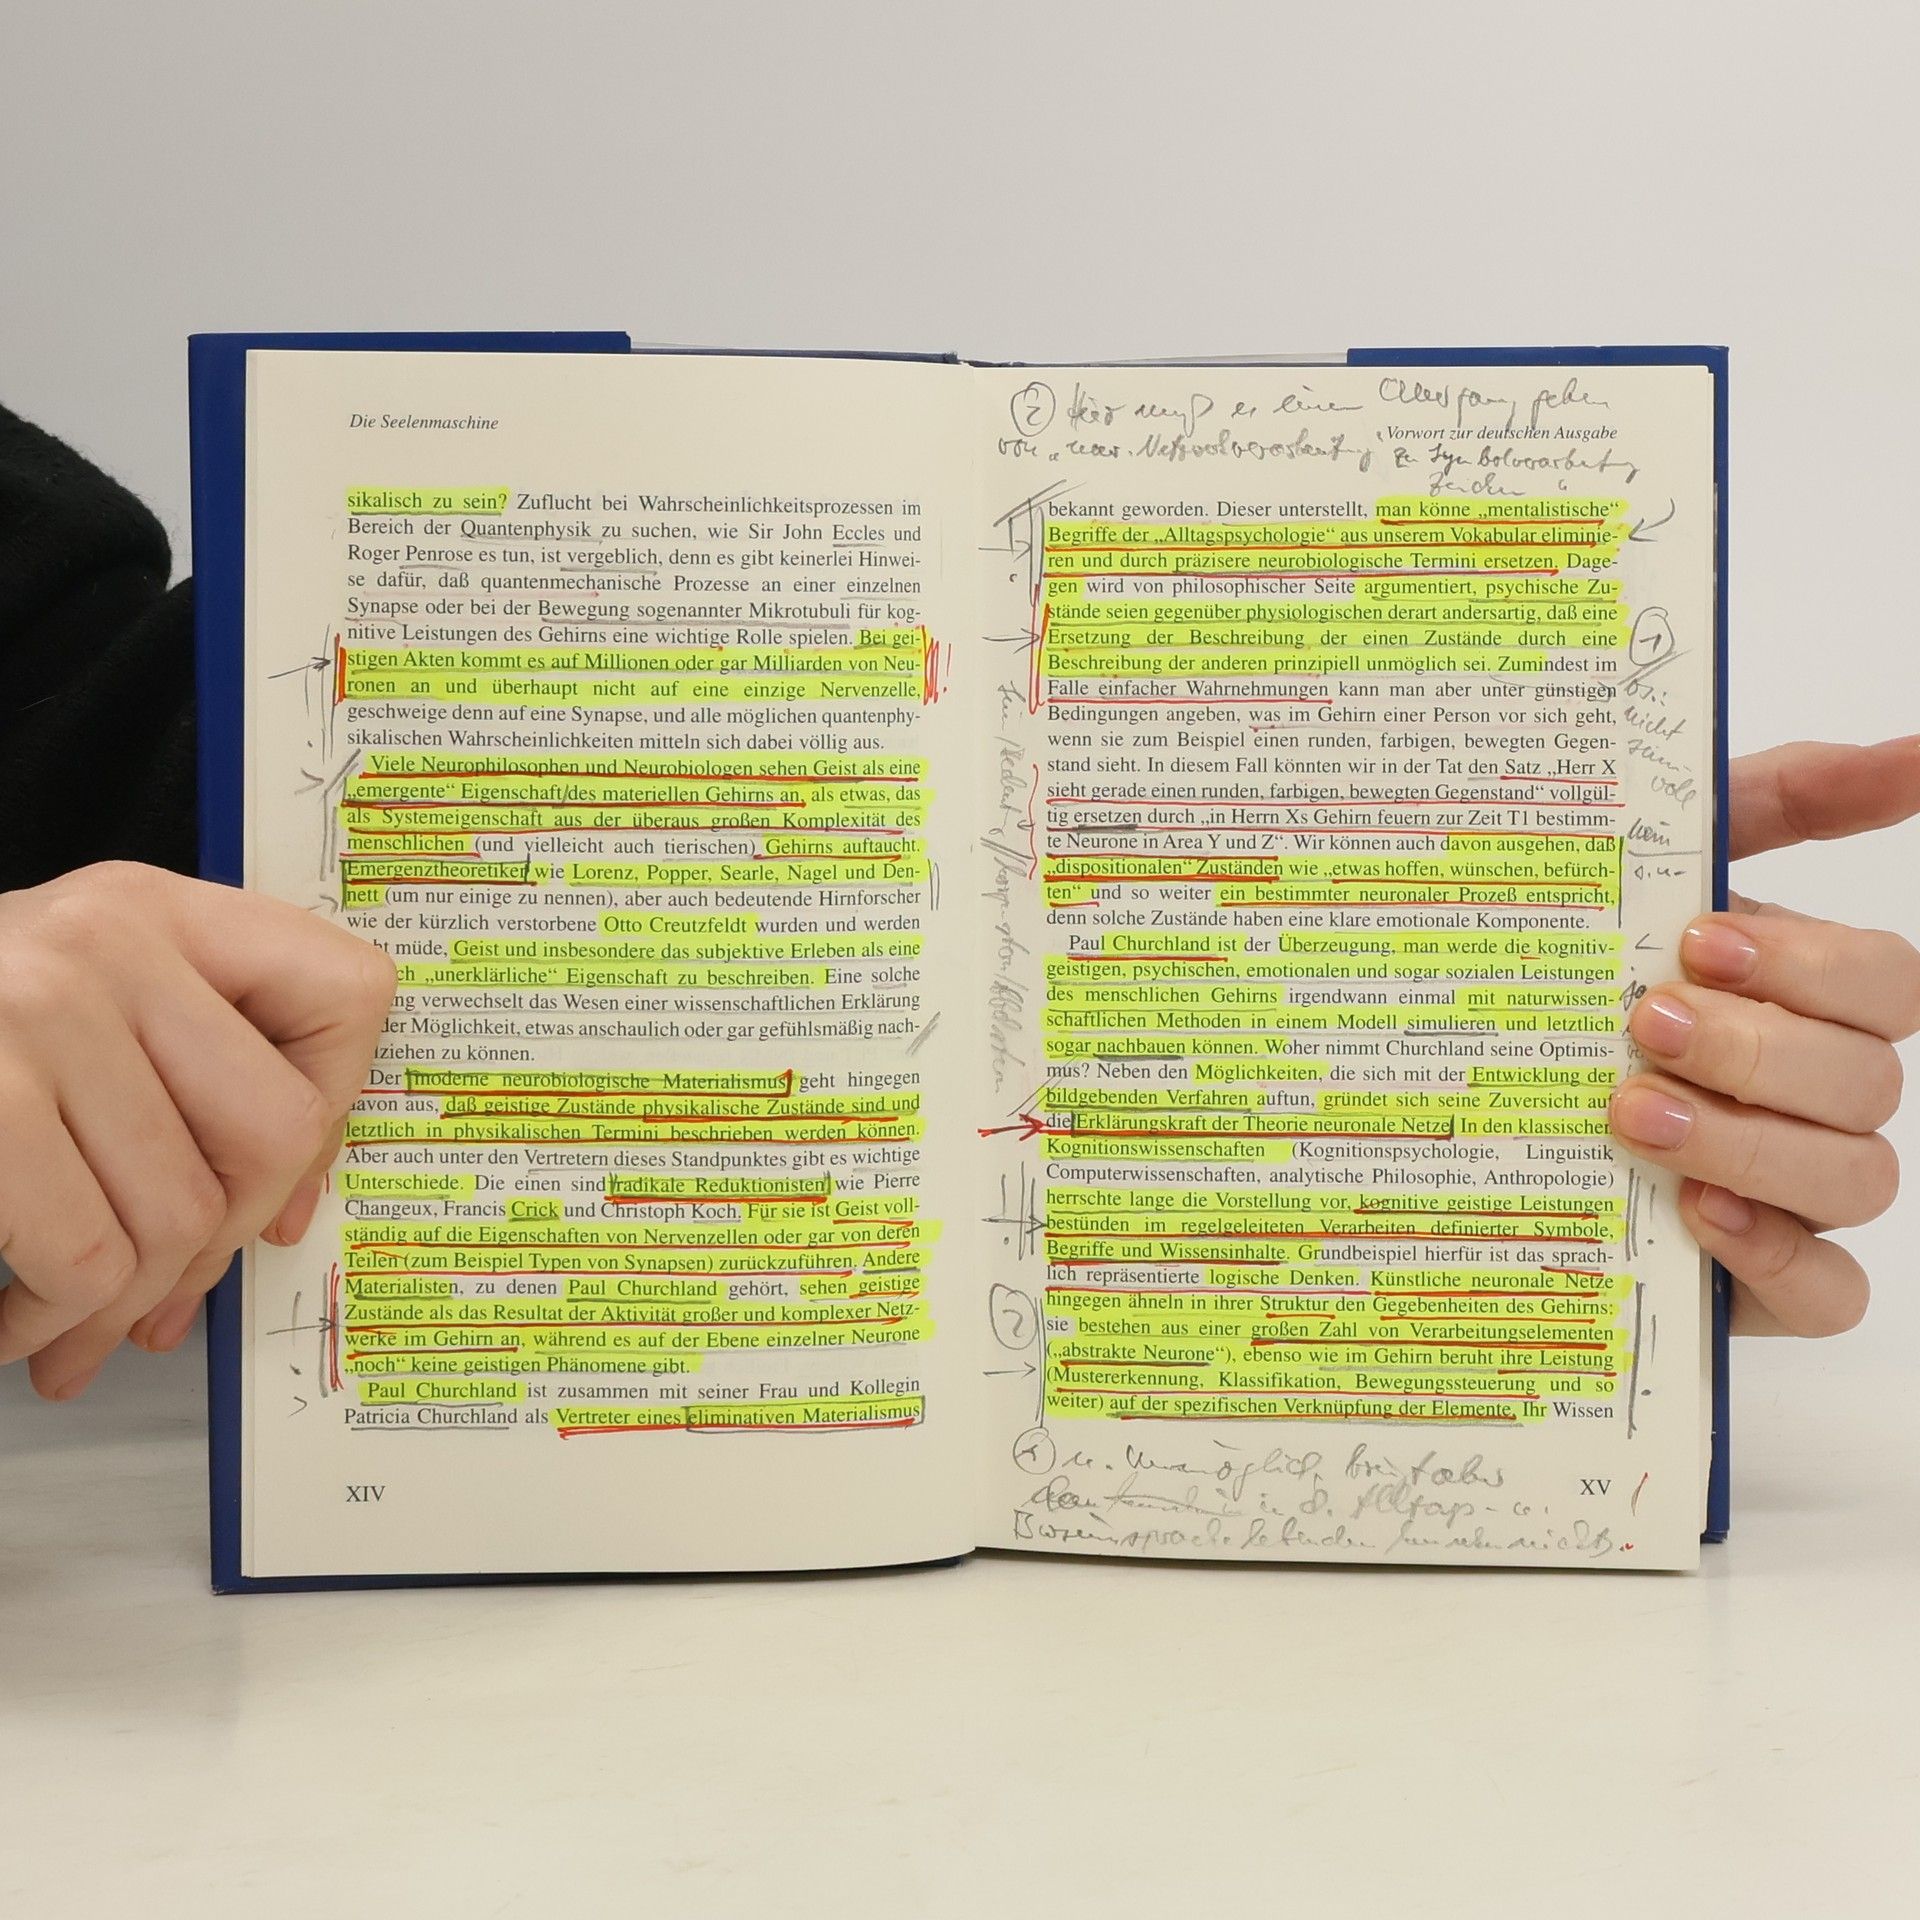 Die Seelenmaschine
sikalisch zu sein? Zuflucht bei Wahrscheinlichkeitsprozessen im
Bereich der Quantenphysik zu suchen, wie Sir John Eccles und
Roger Penrose es tun, ist vergeblich, denn es gibt keinerlei Hinwei-
se dafür, daß quantenmechanische Prozesse an einer einzelnen
Synapse oder bei der Bewegung sogenannter Mikrotubuli für kog-
nitive Leistungen des Gehirns eine wichtige Rolle spielen. Bei gei-
stigen Akten kommt es auf Millionen oder gar Milliarden von Neu-
ronen an und überhaupt nicht auf eine einzige Nervenzelle,
geschweige denn auf eine Synapse, und alle möglichen quantenphy-
sikalischen Wahrscheinlichkeiten mitteln sich dabei völlig aus.
Viele Neurophilosophen und Neurobiologen sehen Geist als eine
„emergente“ Eigenschaft des materiellen Gehirns an, als etwas, das
als Systemeigenschaft aus der überaus großen Komplexität des
menschlichen (und vielleicht auch tierischen) Gehirns auftaucht.
Emergenztheoretiker wie Lorenz, Popper, Searle, Nagel und Den-
nett (um nur einige zu nennen), aber auch bedeutende Hirnforscher
wie der kürzlich verstorbene Otto Creutzfeldt wurden und werden
müde, Geist und insbesondere das subjektive Erleben als eine
„unerklärliche“ Eigenschaft zu beschreiben. Eine solche
verwechselt das Wesen einer wissenschaftlichen Erklärung
der Möglichkeit, etwas anschaulich oder gar gefühlsmäßig nach-
ziehen zu können.
Der moderne neurobiologische Materialismus geht hingegen
davon aus, daß geistige Zustände physikalische Zustände sind und
letztlich in physikalischen Termini beschrieben werden können.
Aber auch unter den Vertretern dieses Standpunktes gibt es wichtige
Unterschiede. Die einen sind radikale Reduktionisten wie Pierre
Changeux, Francis Crick und Christoph Koch. Für sie ist Geist voll-
ständig auf die Eigenschaften von Nervenzellen oder gar von deren
Teilen (zum Beispiel Typen von Synapsen) zurückzuführen. Andere
Materialisten, zu denen Paul Churchland gehört, sehen geistige
Zustände als das Resultat der Aktivität großer und komplexer Netz-
werke im Gehirn an, während es auf der Ebene einzelner Neurone
„noch“ keine geistigen Phänomene gibt.
Paul Churchland ist zusammen mit seiner Frau und Kollegin
Patricia Churchland als Vertreter eines eliminativen Materialismus
XIV
2 Hier muß es einen geben
Vorwort zur deutschen Ausgabe
bekannt geworden. Dieser unterstellt, man könne „mentalistische“
Begriffe der „Alltagspsychologie“ aus unserem Vokabular eliminie-
ren und durch präzisere neurobiologische Termini ersetzen. Dage-
gen wird von philosophischer Seite argumentiert, psychische Zu-
stände seien gegenüber physiologischen derart andersartig, daß eine
Ersetzung der Beschreibung der einen Zustände durch eine
Beschreibung der anderen prinzipiell unmöglich sei. Zumindest im
Falle einfacher Wahrnehmungen kann man aber unter günstigen
Bedingungen angeben, was im Gehirn einer Person vor sich geht,
wenn sie zum Beispiel einen runden, farbigen, bewegten Gegen-
stand sieht. In diesem Fall könnten wir in der Tat den Satz „Herr X
sieht gerade einen runden, farbigen, bewegten Gegenstand“ vollgül-
tig ersetzen durch „in Herrn Xs Gehirn feuern zur Zeit T1 bestimm-
te Neurone in Area Y und Z“. Wir können auch davon ausgehen, daß
„dispositionalen“ Zuständen wie „etwas hoffen, wünschen, befürch-
ten“ und so weiter ein bestimmter neuronaler Prozeß entspricht,
denn solche Zustände haben eine klare emotionale Komponente.
Paul Churchland ist der Überzeugung, man werde die kognitiv-
geistigen, psychischen, emotionalen und sogar sozialen Leistungen
des menschlichen Gehirns irgendwann einmal mit naturwissen-
schaftlichen Methoden in einem Modell simulieren und letztlich
sogar nachbauen können. Woher nimmt Churchland seine Optimis-
mus? Neben den Möglichkeiten, die sich mit der Entwicklung der
bildgebenden Verfahren auftun, gründet sich seine Zuversicht auf
die Erklärungskraft der Theorie neuronale Netze. In den klassischen
Kognitionswissenschaften (Kognitionspsychologie, Linguistik
Computerwissenschaften, analytische Philosophie, Anthropologie)
herrschte lange die Vorstellung vor, kognitive geistige Leistungen
bestünden im regelgeleiteten Verarbeiten definierter Symbole,
Begriffe und Wissensinhalte. Grundbeispiel hierfür ist das sprach-
lich repräsentierte logische Denken. Künstliche neuronale Netze
hingegen ähneln in ihrer Struktur den Gegebenheiten des Gehirns:
sie bestehen aus einer großen Zahl von Verarbeitungselementen
(„abstrakte Neurone“), ebenso wie im Gehirn beruht ihre Leistung
(Mustererkennung, Klassifikation, Bewegungssteuerung und so
weiter) auf der spezifischen Verknüpfung der Elemente. Ihr Wissen
1
nicht
2
XV